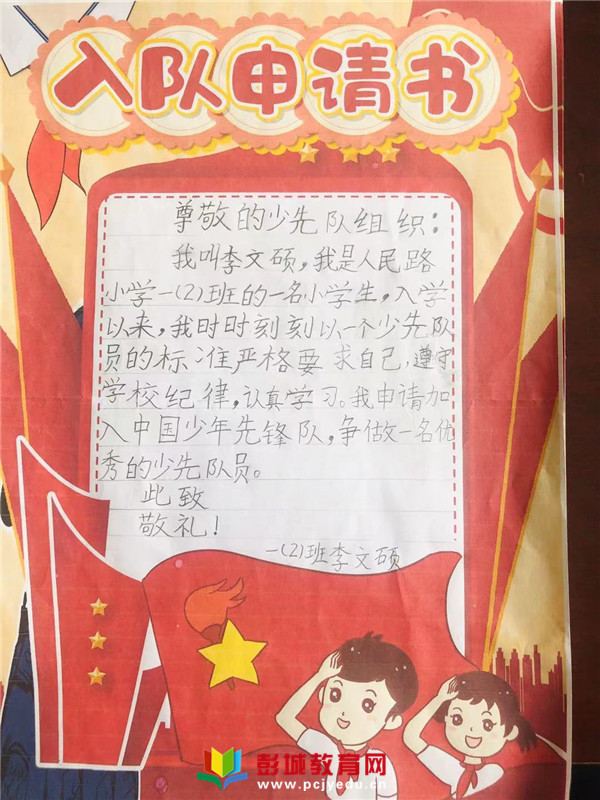 入队申请书
尊敬的少先队组织：
我叫李文硕，我是人民路
小学一(2)班的一名小学生，入学
以来，我时时刻刻以一个少先队
员的标准严格要求自己，遵守
学校纪律，认真学习。我申请加
入中国少年先锋队，争做一名优
秀的少先队员。
此致
敬礼！
一(2)班李文硕
彭城教育网
www.pcjyedu.cn